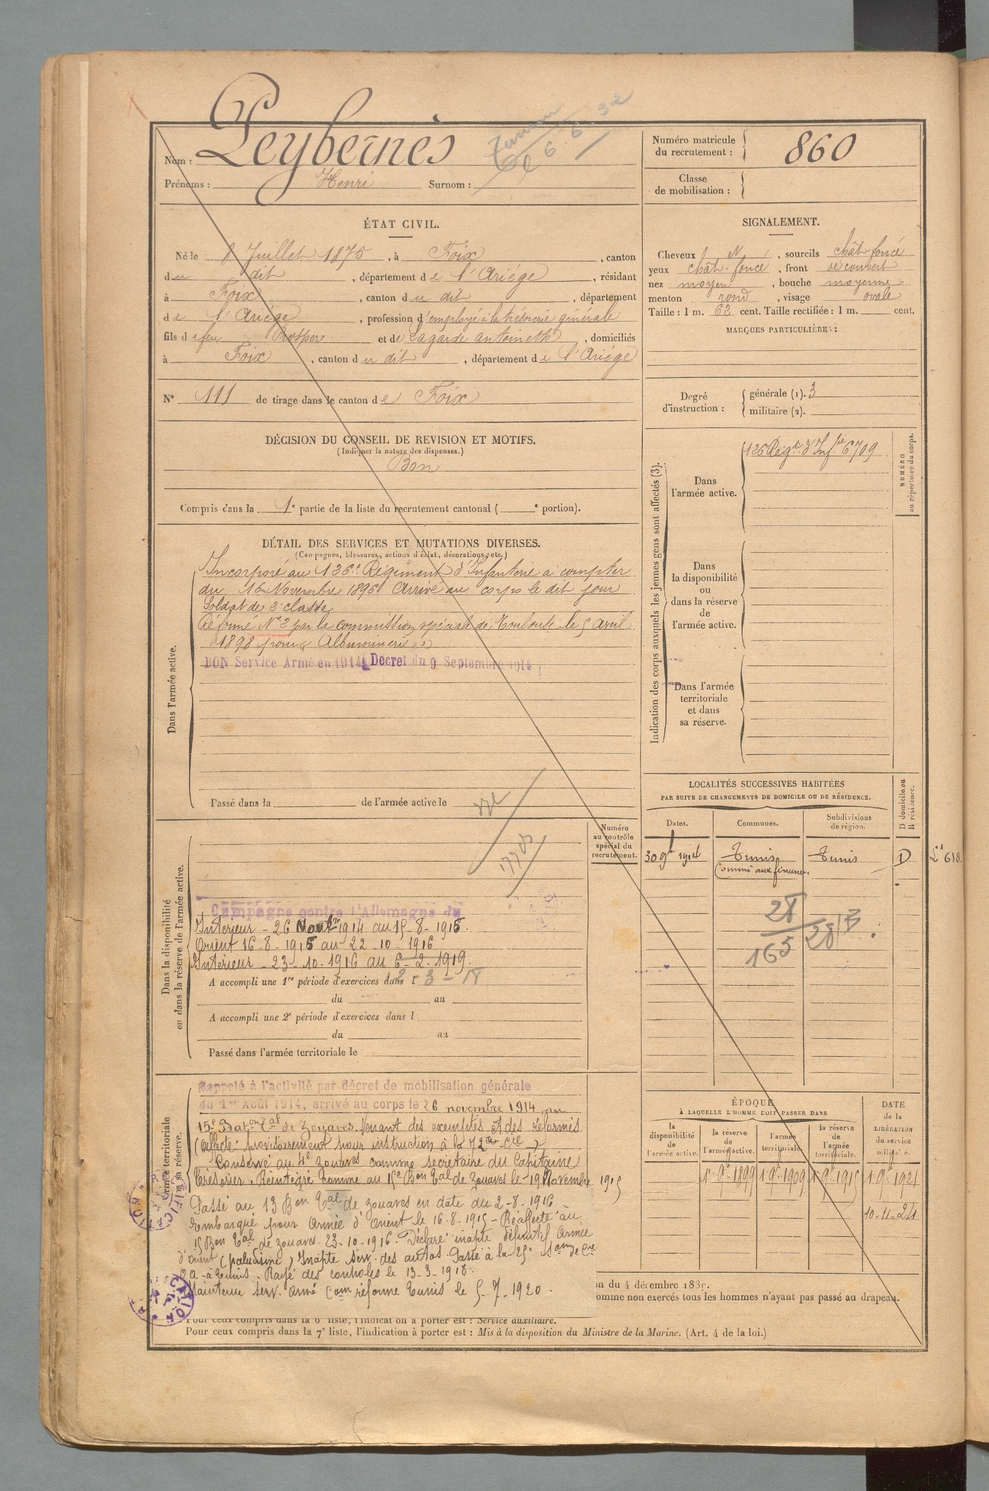 Nom : Peybernès
Prénoms : Henri Surnom :
Numéro matricule du recrutement : 860
Classe de mobilisation :
ÉTAT CIVIL.
Né le 8 Juillet 1875, à Foix, canton
du dit, département de l'Ariége, résidant
à Foix, canton du dit, département
de l'Ariége, profession d'employé à la trésorerie générale
fils de feu Prosper et de Lagarde antoinette, domiciliés
à Foix, canton du dit, département de l'Ariége
N° 111 de tirage dans le canton de Foix
SIGNALEMENT.
Cheveux N, sourcils chât foncé
yeux chât. foncé, front recouvert
nez moyen, bouche moyenne
menton rond, visage ovale
Taille : 1 m. 62 cent. Taille rectifiée : 1 m. cent.
MARQUES PARTICULIÈRES :
Degré d'instruction : générale (1). 3
militaire (2).
DÉCISION DU CONSEIL DE REVISION ET MOTIFS.
(Indiquer la nature des dispenses.)
Bon
Compris dans la 1e partie de la liste du recrutement cantonal ( e portion).
DÉTAIL DES SERVICES ET MUTATIONS DIVERSES.
(Campagnes, blessures, actions d'éclat, décorations, etc.)
Dans l'armée active.
Incorporé au 126e Régiment d'Infanterie à compter
du 16 Novembre 1896 Arrivé au corps le dit jour
Soldat de 2e classe
Réformé N° 2 par la commission spéciale de Toulouse le 5 avril
1898 pour Albuminerie
BON Service Armé en 1914 Decret du 9 Septembre 1914
Passé dans la de l'armée active le
Indication des corps auxquels les jeunes gens sont affectés (3).
NUMÉRO au répertoire du corps.
Dans l'armée active. 126 Régt d'Infie 6709
Dans la disponibilité ou dans la réserve de l'armée active.
Dans l'armée territoriale et dans sa réserve.
LOCALITÉS SUCCESSIVES HABITÉES
PAR SUITE DE CHANGEMENTS DE DOMICILE OU DE RÉSIDENCE.
Dates. Communes. Subdivisions de région. D domicile ou R résidence.
30 9bre 1914 Tunis Tunis D
Commis aux finances
28
165
28/B
Numéro au contrôle spécial du recrutement.
Dans la disponibilité ou dans la réserve de l'armée active.
Campagne contre l'Allemagne du
Intérieur - 26 Nov 1914 au 15-8-1915.
Orient 16-8-1915 au 22-10-1916
Intérieur - 23-10-1916 au 6-2-1919.
A accompli une 1re période d'exercices dans l
du au
A accompli une 2e période d'exercices dans l
du au
Passé dans l'armée territoriale le
Rappelé à l'activité par décret de mobilisation générale
du 1er Août 1914, arrivé au corps le 26 novembre 1914, au
15e Baton Tal de Zouaves. Venant des exemptés et des réformés.
(affecté provisoirement pour instruction à la 72e Cie)
Conservé au 4e Zouaves comme secrétaire du Capitaine
Trésorier. Réintégré comme au 15e Bon Tal de Zouaves le 19 Novembre 1915
Passé au 13 Bon Tal de Zouaves en date du 2-8-1916
rembarqué pour Armée d'Orient le 16-8-1915 - Réaffecté au
15 Bon Tal de Zouaves. 23-10-1916. Déclaré inapte définitif Armée
d'orient (paludisme) Inapte serv. des autos Passé à la 25e
à Tunis. Rayé des controles le 13-3-1918.
Maintenu serv. armé Com réforme Tunis le 5-7-1920.
ÉPOQUE
À LAQUELLE L'HOMME DOIT PASSER DANS
la disponibilité de l'armée active. la réserve de l'armée active. l'armée territoriale. la réserve de l'armée territoriale.
DATE de la LIBÉRATION du service militaire.
1 9bre 1899 1 9bre 1909 1 9bre 1915 1 9bre 1921
10-11-24
on du 4 décembre 1835.
omme non exercés tous les hommes n'ayant pas passé au drapeau.
Pour ceux compris dans la 6e liste, l'indication à porter est : Service auxiliaire.
Pour ceux compris dans la 7e liste, l'indication à porter est : Mis à la disposition du Ministre de la Marine. (Art. 4 de la loi.)